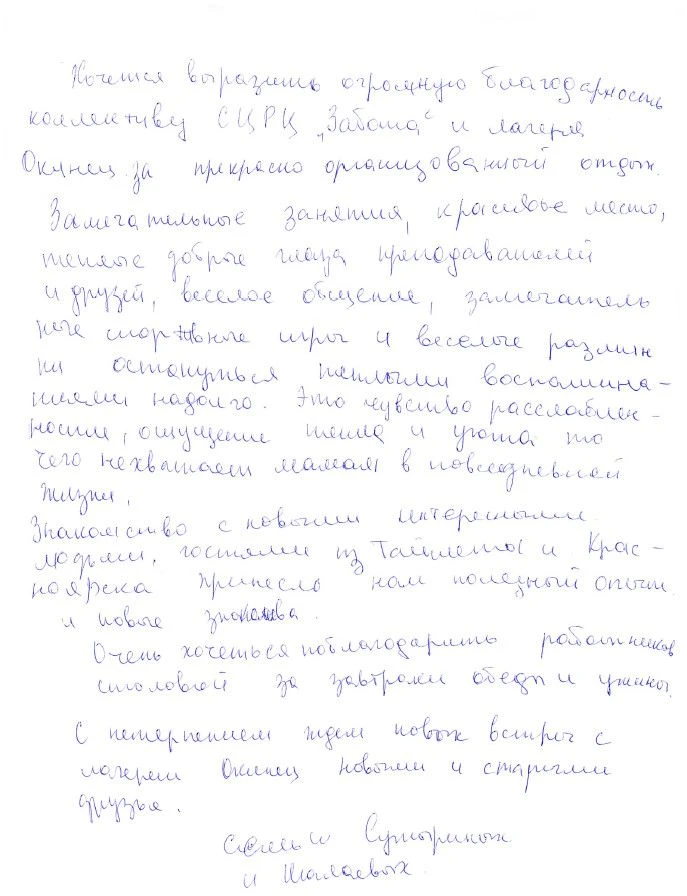 Хочется выразить огромную благодарность
коллективу СЦРЦ „Забота“ и лагеря
Окунец за прекрасно организованный отдых.
Замечательные занятия, красивое место,
теплые добрые глаза преподавателей
и друзей, веселое общение, замечатель
ные спортивные игры и веселые размин
ки останутся теплыми воспомина-
ниями надолго. Это чувство расслаблен-
ности, ощущение тепла и уюта то
чего нехватает мамам в повседневной
жизни.
Знакомство с новыми интересными
людьми, гостями из Тайшета и Крас-
ноярска принесло нам полезный опыт
и новые
Очень хочеться поблагодарить работников
столовой за завтраки обеды и ужины.
С нетерпением ждем новых встреч с
лагерем Окунец новыми и старыми
друзья.
Семьи
и Шалаевых.